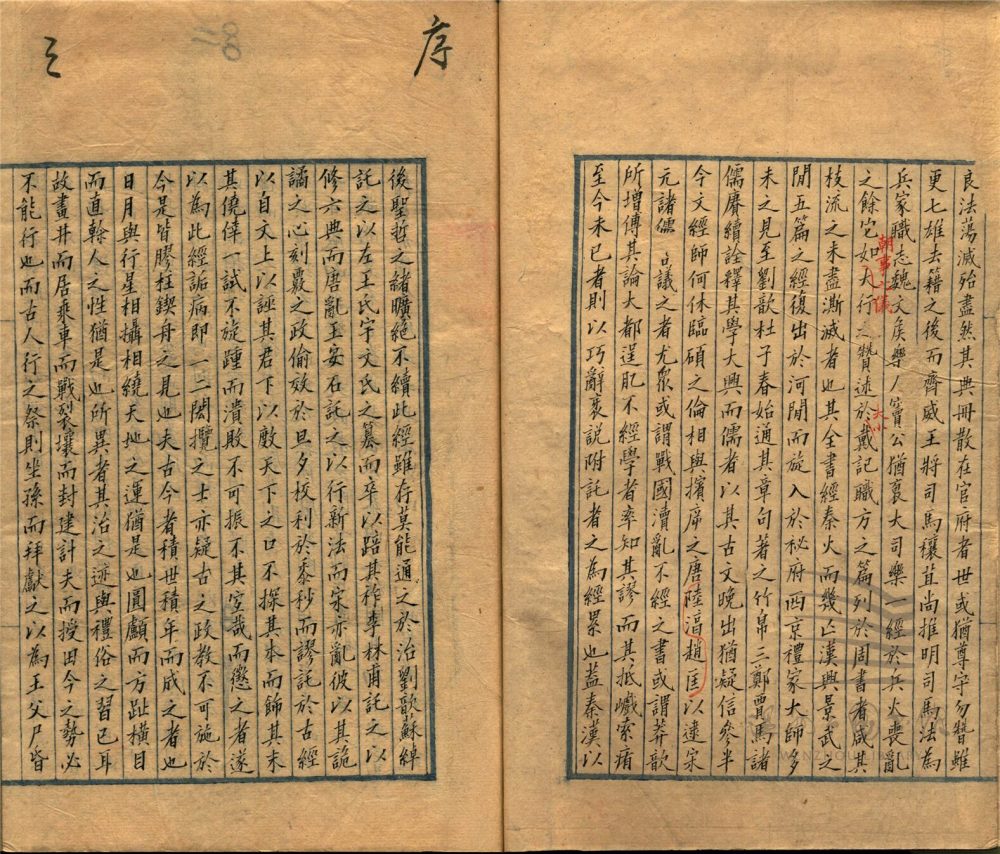 良法蕩滅殆盡然其典冊散在官府者世或猶尊守勿朁雖
更七雄去籍之後而齊威王將司馬穰苴尚推明司馬法為
兵家職志魏文矦樂人竇公猶裒大司樂一經於兵火喪亂
之餘它如大行之贊述於戴記職方之篇列於周書者咸其
朝事儀
大小
枝流之未盡澌滅者也其全書經秦火而幾亡漢興景武之
閒五篇之經復出於河閒而旋入於秘府西京禮家大師多
未之見至劉歆杜子春始通其章句著之竹帛三鄭賈馬諸
儒賡續詮釋其學大興而儒者以其古文晚出猶疑信參半
今文經師何休臨碩之倫相與擯庌之唐陸淳趙匡以逮宋
元諸儒呰議之者尤眾或謂戰國瀆亂不經之書或謂莽歆
所增傅其論大都逞肊不經學者率知其謬而其抵巇索痏
至今未已者則以巧辭衺説附託者之為經累也葢秦漢以
序
三
後聖哲之緒曠絕不續此經雖存莫能通之於治劉歆蘇綽
託之以左王氏宇文氏之篡而卒以踣其祚李林甫託之以
修六典而唐亂王安石託之以行新法而宋亦亂彼以其詭
譎之心刻覈之政偷效於旦夕校利於黍秒而謬託於古經
以自文上以誣其君下以㪇天下之口不探其本而飾其末
其僥倖一試不旋踵而潰敗不可振不其宜哉而懲之者遂
以為此經詬病即一二閎攬之士亦疑古之政教不可施於
今是皆膠柱鍥舟之見也夫古今者積世積年而成之者也
日月與行星相攝相繞天地之運猶是也圓顱而方趾橫目
而直榦人之性猶是也所異者其治之迹與禮俗之習已耳
故畫井而居乘車而戰裂壤而封建計夫而授田今之勢必
不能行也而古人行之祭則坐孫而拜獻之以為王父尸昏